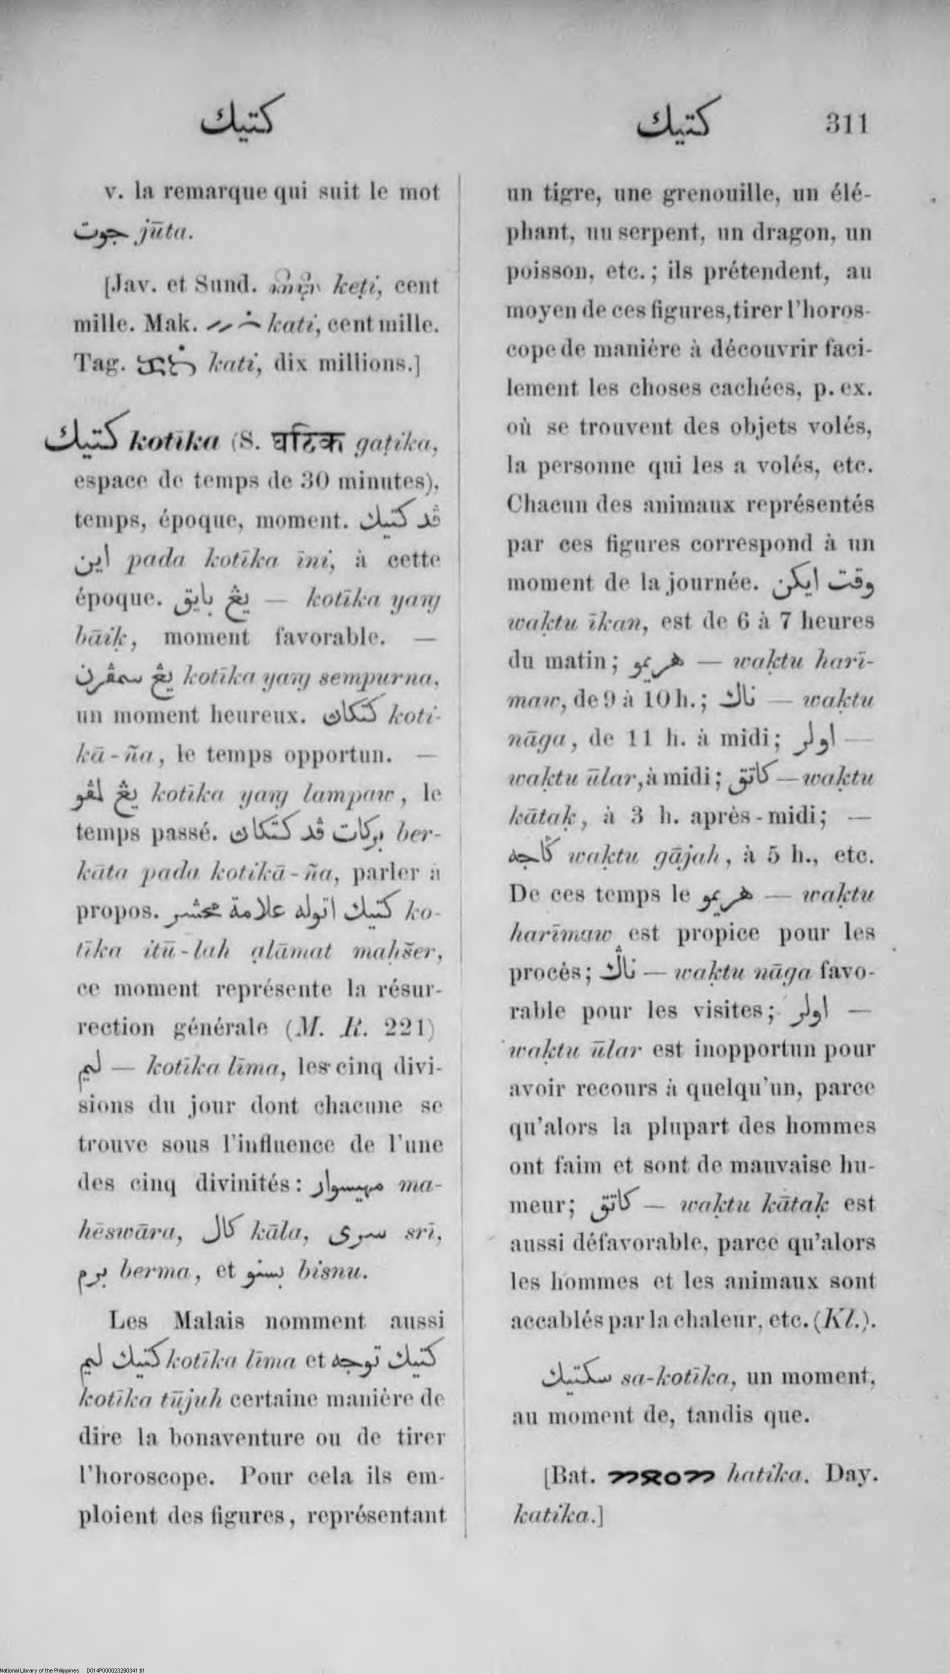 كتيك
كتيك 311
v. la remarque qui suit le mot
جوت jūta.
[Jav. et Sund. keṭi, cent
mille. Mak. kati, cent mille.
Tag. kati, dix millions.]
كتيك kotīka (S. घटिक gaṭika,
espace de temps de 30 minutes),
temps, époque, moment. ڤد كتيك
اين pada kotīka īni, à cette
époque. يڠ بايق — kotīka yaŋ
bāiḳ, moment favorable. —
يڠ سمڤرن kotīka yaŋ sempurna,
un moment heureux. كتكاڽ koti-
kā-ña, le temps opportun. —
يڠ لمڤو kotīka yaŋ lampaw, le
temps passé. بركات ڤد كتكاڽ ber-
kāta pada kotikā-ña, parler à
propos. كتيك اتوله علامة محشر ko-
tīka itū-lah ạlāmat maḥšer,
ce moment représente la résur-
rection générale (M. R. 221)
ليم — kotīka līma, les cinq divi-
sions du jour dont chacune se
trouve sous l'influence de l'une
des cinq divinités: مهيسوار ma-
hēswāra, كال kāla, سري srī,
برم berma, et بسنو bisnu.
Les Malais nomment aussi
كتيك ليم kotīka līma et كتيك توجه
kotīka tūjuh certaine manière de
dire la bonaventure ou de tirer
l'horoscope. Pour cela ils em-
ploient des figures, représentant
un tigre, une grenouille, un élé-
phant, un serpent, un dragon, un
poisson, etc.; ils prétendent, au
moyen de ces figures, tirer l'horos-
cope de manière à découvrir faci-
lement les choses cachées, p. ex.
où se trouvent des objets volés,
la personne qui les a volés, etc.
Chacun des animaux représentés
par ces figures correspond à un
moment de la journée. وقت ايكن
waḳtu īkan, est de 6 à 7 heures
du matin; هريمو — waḳtu harī-
maw, de 9 à 10 h.; ناڬ — waḳtu
nāga, de 11 h. à midi; اولر —
waḳtu ūlar, à midi; كاتق — waḳtu
kātaḳ, à 3 h. après-midi; —
ڬاجه waḳtu gājah, à 5 h., etc.
De ces temps le هريمو — waḳtu
harīmaw est propice pour les
procès; ناڬ — waḳtu nāga favo-
rable pour les visites; اولر —
waḳtu ūlar est inopportun pour
avoir recours à quelqu'un, parce
qu'alors la plupart des hommes
ont faim et sont de mauvaise hu-
meur; كاتق — waḳtu kātaḳ est
aussi défavorable, parce qu'alors
les hommes et les animaux sont
accablés par la chaleur, etc. (Kl.).
سكتيك sa-kotīka, un moment,
au moment de, tandis que.
[Bat. hatika. Day.
katika.]
National Library of the Philippines